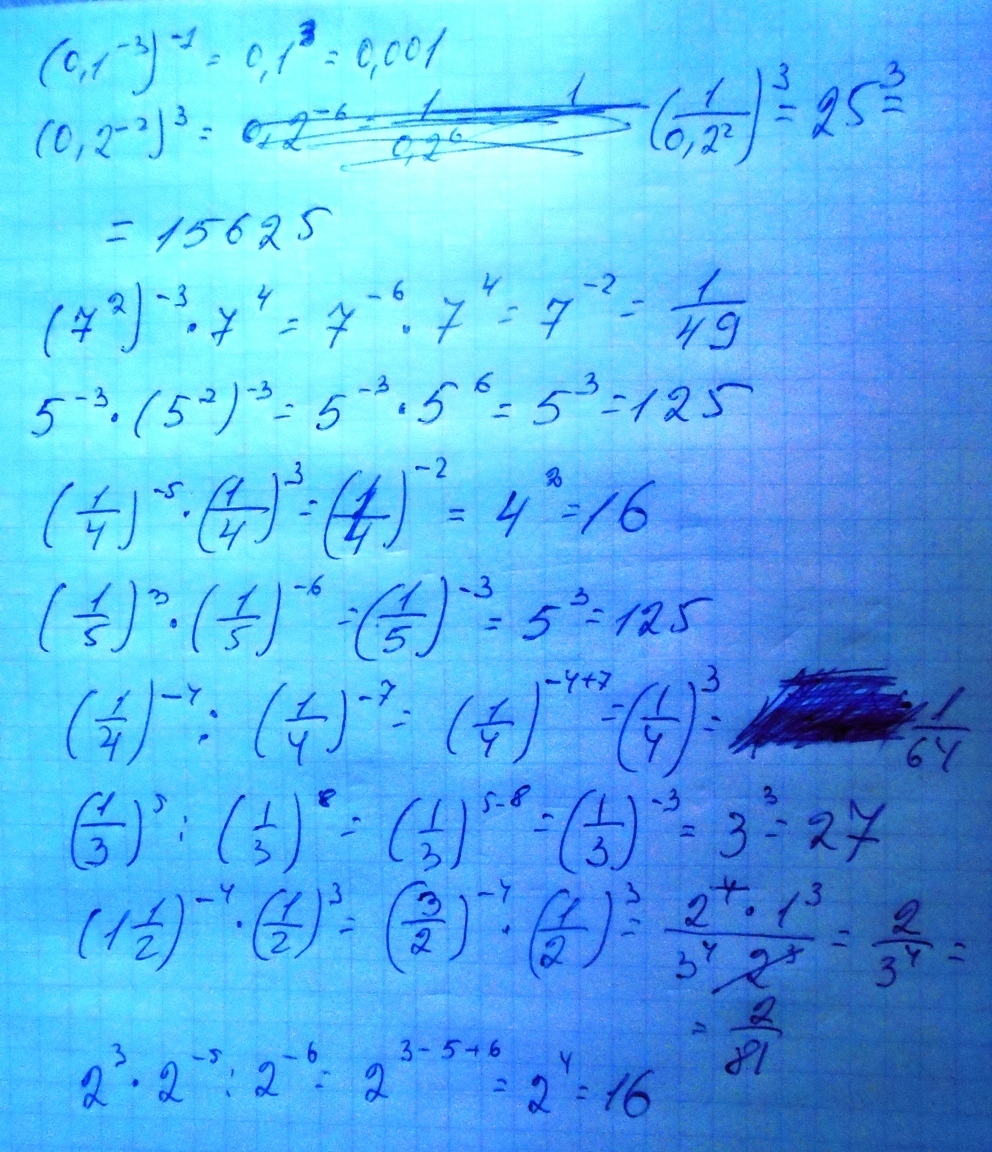 (0,1⁻³)⁻¹ = 0,1³ = 0,001
(0,2⁻²)³ = 0,2⁻⁶ = 1/0,2⁶ 1 (1/0,2²)³ = 25³ =
= 15625
(7²)⁻³ · 7⁴ = 7⁻⁶ · 7⁴ = 7⁻² = 1/49
5⁻³ · (5²)⁻³ = 5⁻³ · 5⁶ = 5³ = 125
(1/4)⁻⁵ · (1/4)³ = (1/4)⁻² = 4² = 16
(1/5)³ · (1/5)⁻⁶ = (1/5)⁻³ = 5³ = 125
(1/4)⁻⁴ : (1/4)⁻⁷ = (1/4)⁻⁴⁺⁷ = (1/4)³ = 1/64
(1/3)⁵ : (1/3)⁸ = (1/3)⁵⁻⁸ = (1/3)⁻³ = 3³ = 27
(1 1/2)⁻⁴ · (1/2)³ = (3/2)⁻⁴ · (1/2)³ = 2⁴ · 1³ / 3⁴ 2³ = 2/3⁴ =
= 2/81
2³ · 2⁻⁵ : 2⁻⁶ = 2³⁻⁵⁺⁶ = 2⁴ = 16